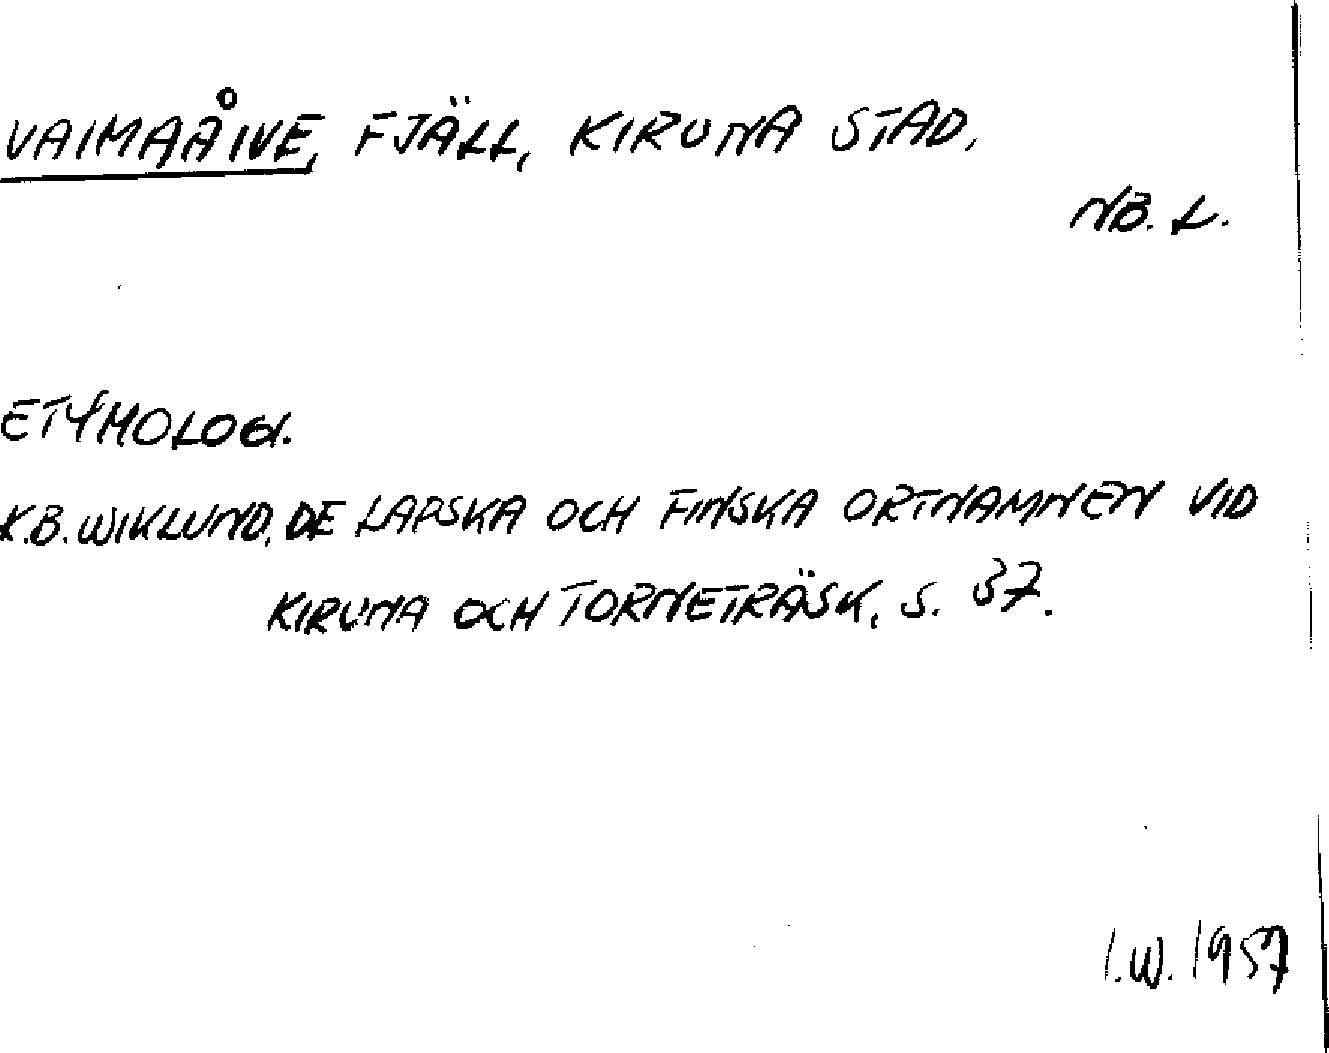 VAIMAÅIVE, FJÄLL, KIRUNA STAD,
NB. L.
ETYMOLOGI.
K.B. WIKLUND, DE LAPSKA OCH FINSKA ORTNAMNEN VID
KIRUNA OCH TORNETRÄSK, S. 37.
I.W. 1957